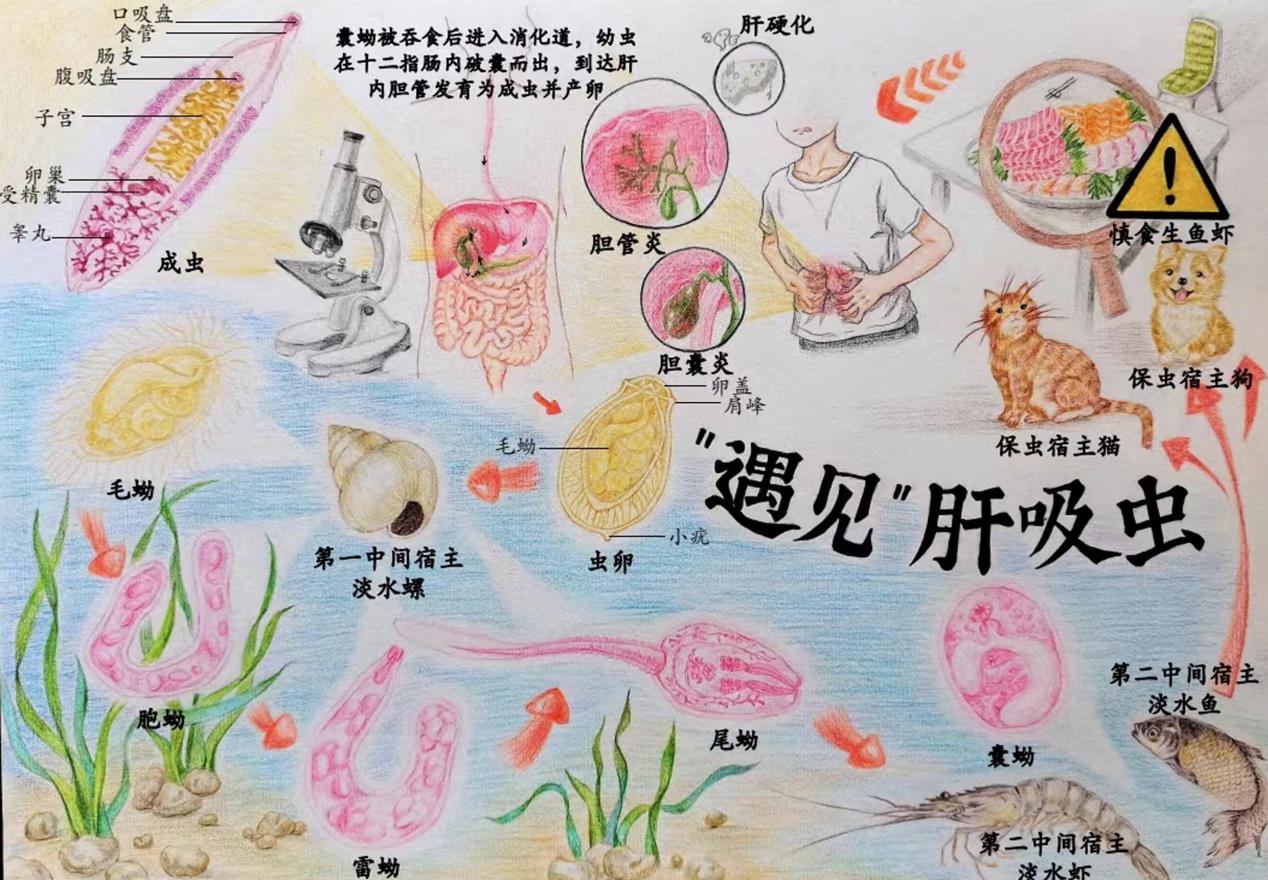 口吸盘
食管
肠支
腹吸盘
子宫
卵巢
受精囊
睾丸
成虫
囊蚴被吞食后进入消化道，幼虫
在十二指肠内破囊而出，到达肝
内胆管发育为成虫并产卵
肝硬化
胆管炎
胆囊炎
慎食生鱼虾
保虫宿主狗
保虫宿主猫
卵盖
肩峰
毛蚴
小疣
虫卵
"遇见"肝吸虫
毛蚴
第一中间宿主
淡水螺
胞蚴
雷蚴
尾蚴
囊蚴
第二中间宿主
淡水鱼
第二中间宿主
淡水虾